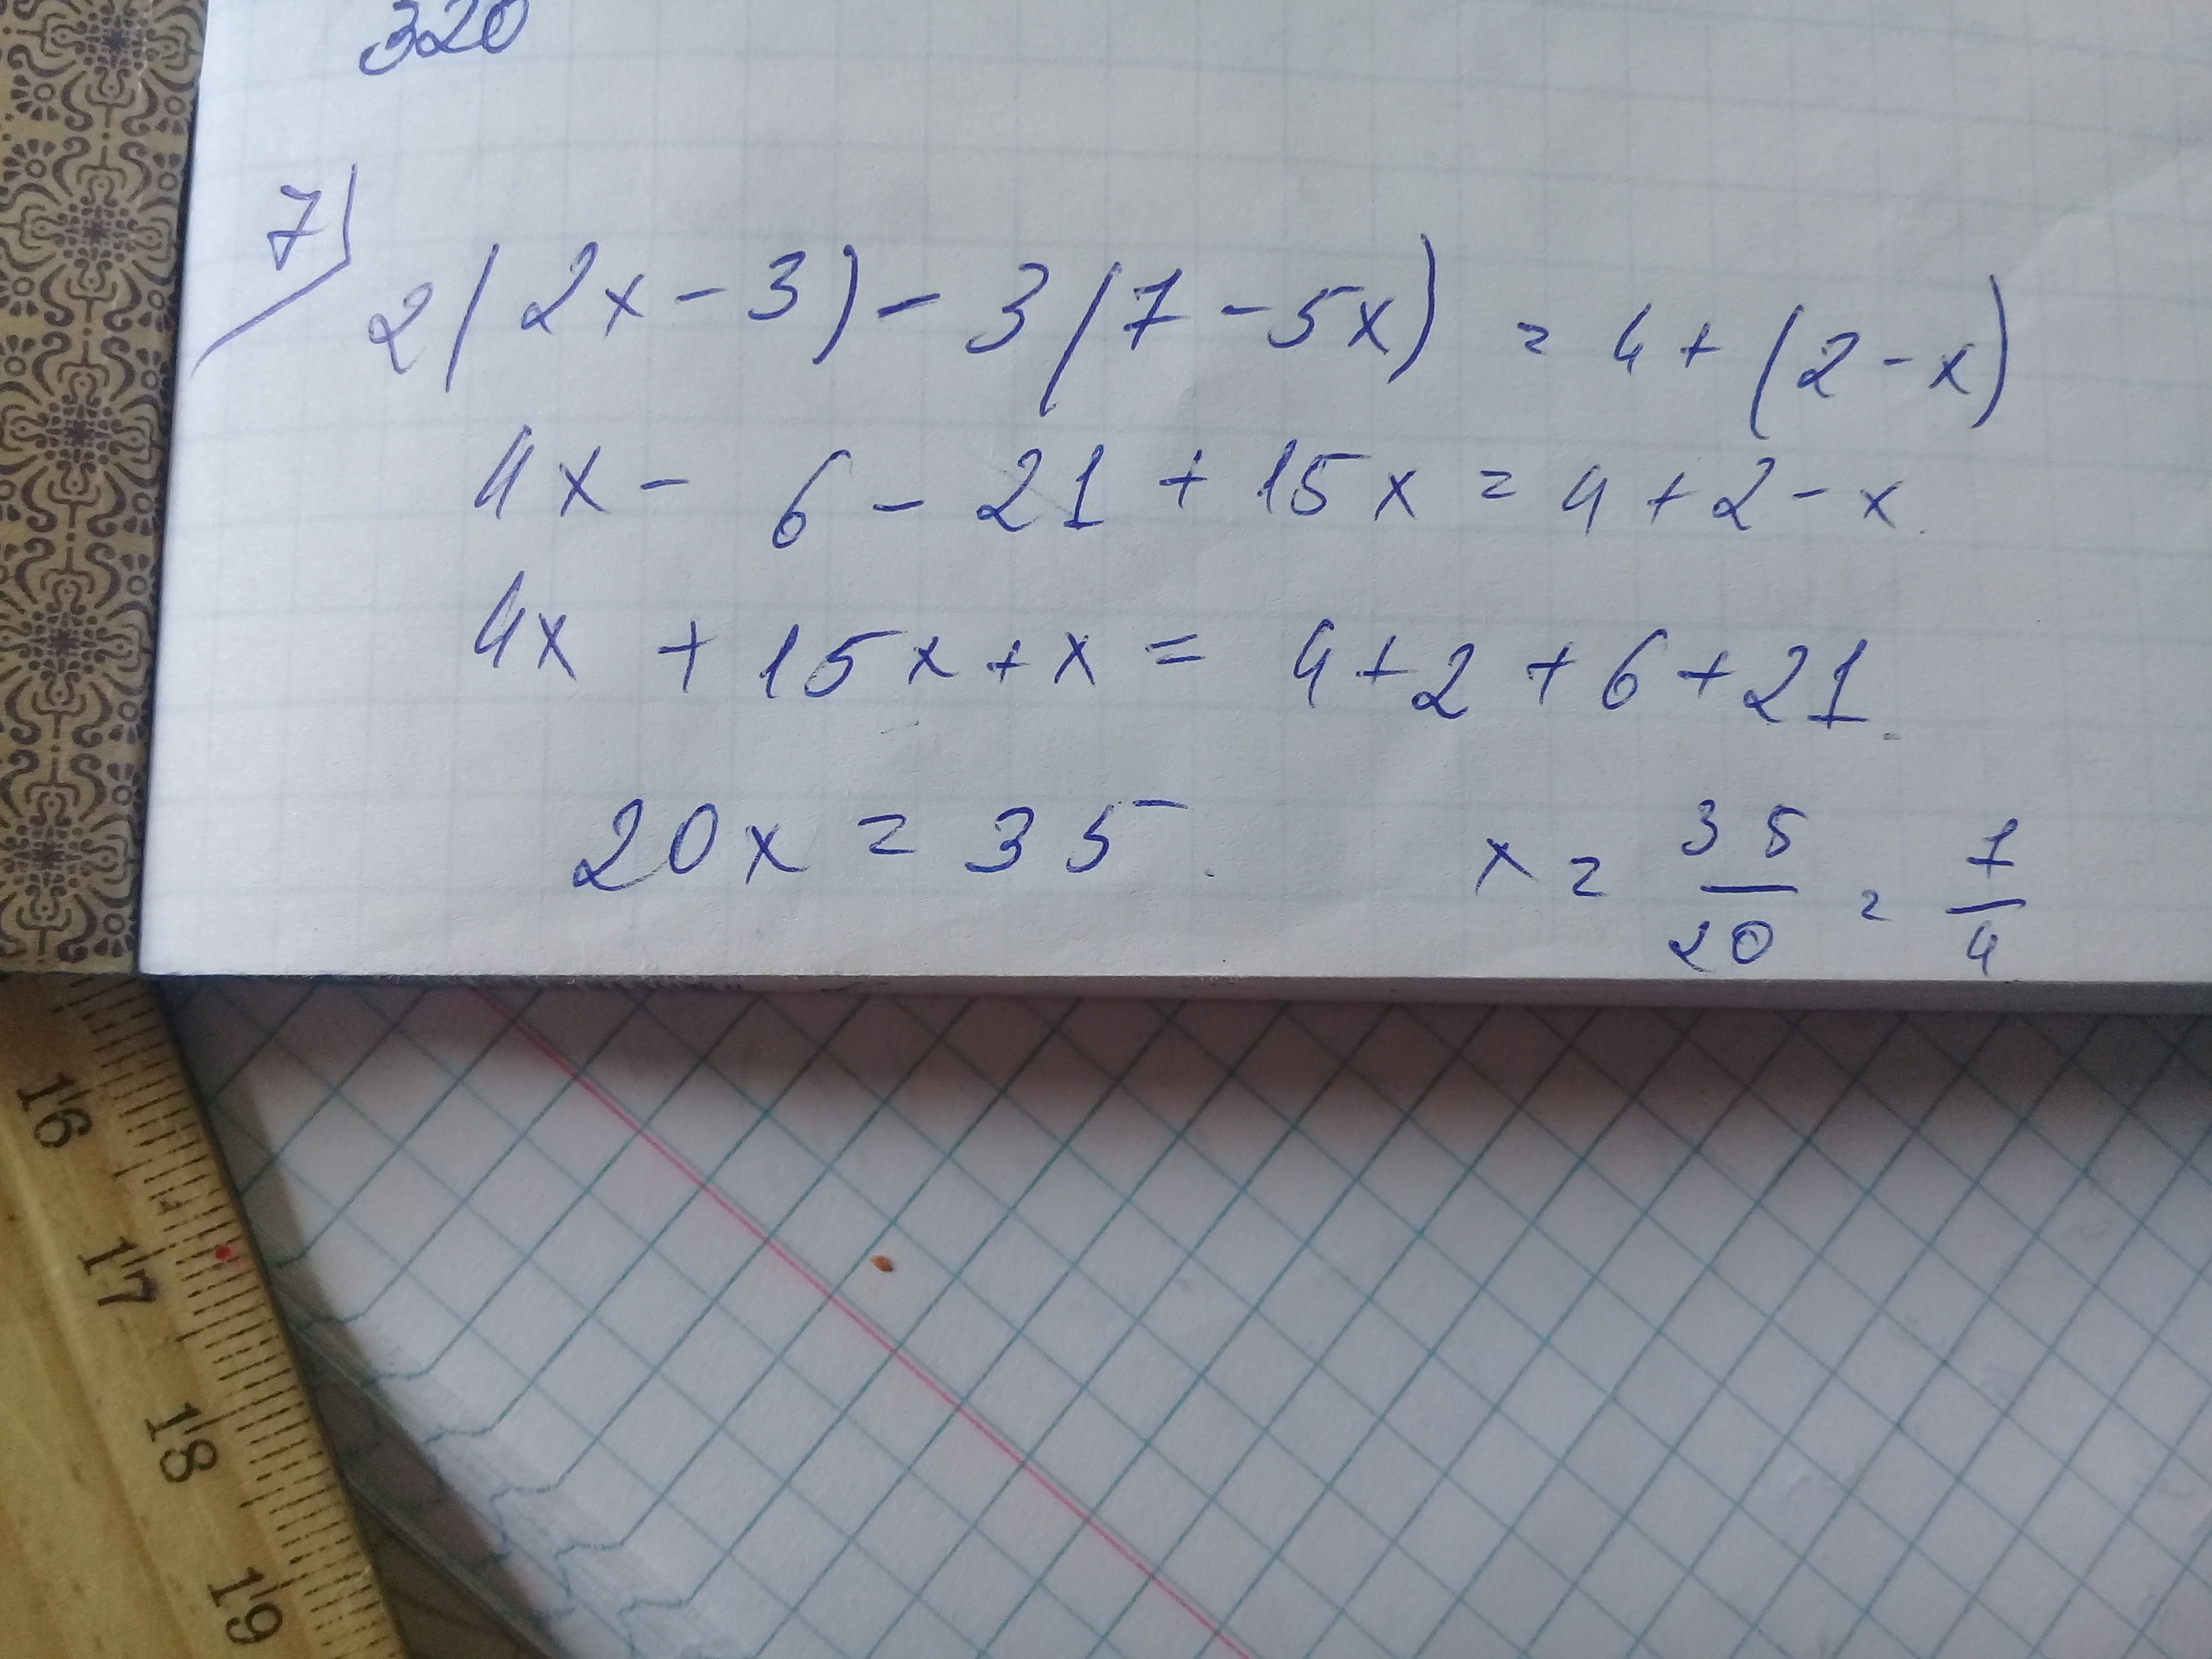 320
7)
2(2x-3)-3(7-5x) = 4+(2-x)
4x- 6-21+15x=4+2-x.
4x +15x+x= 4+2+6+21.
20x=35. x= 35/20 = 7/4
16
17
18
19